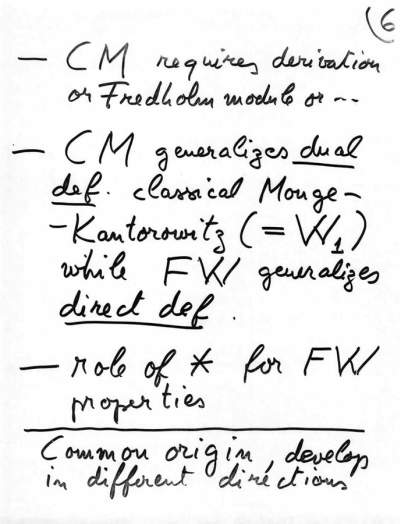 (6
— CM requires derivation
or Fredholm module or ---
— CM generalizes dual
def. classical Monge-
-Kantorowitz (= W1)
while FW generalizes
direct def.
— role of * for FW
properties
Common origin, develop
in different directions